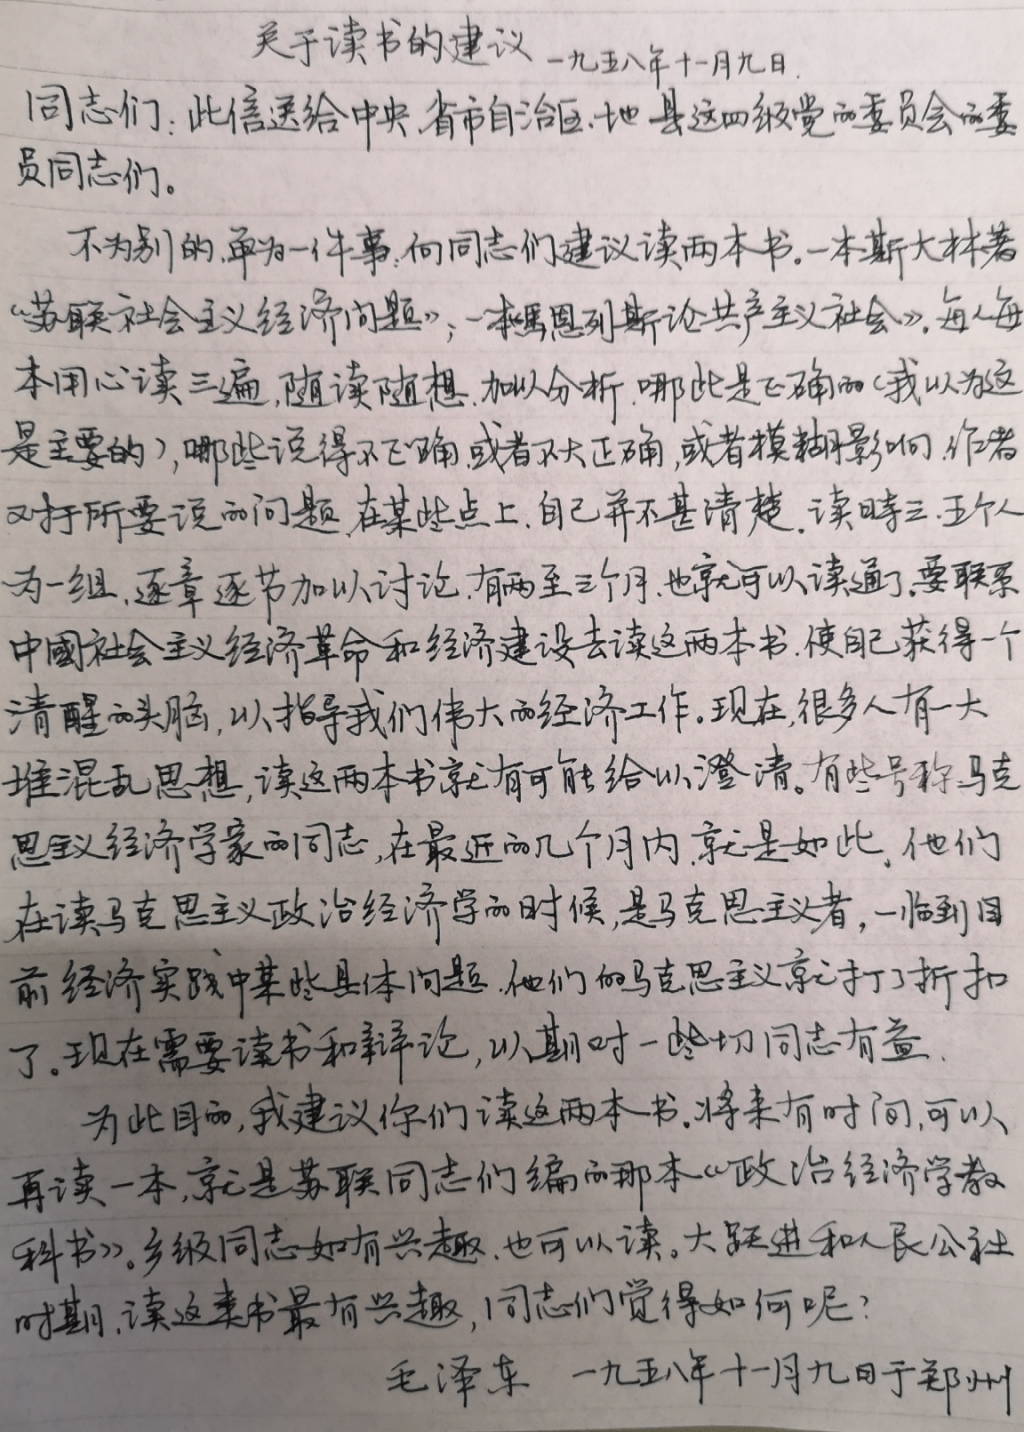 关于读书的建议 一九五八年十一月九日.
同志们:此信送给中央、省市自治区、地、县这四级党的委员会的委
员同志们。
不为别的,单为一件事:向同志们建议读两本书。一本,斯大林著
《苏联社会主义经济问题》;一本《马恩列斯论共产主义社会》。每人每
本用心读三遍,随读随想,加以分析,哪些是正确的(我以为这
是主要的),哪些说得不正确,或者不大正确,或者模糊影响,作者
对于所要说的问题,在某些点上,自己并不甚清楚。读时,三、五个人
为一组,逐章逐节加以讨论,有两至三个月,也就可以读通了。要联系
中國社会主义经济革命和经济建设去读这两本书,使自己获得一个
清醒的头脑,以指导我们伟大的经济工作。现在,很多人有一大
堆混乱思想,读这两本书就有可能给以澄清。有些号称马克
思主义经济学家的同志,在最近的几个月内,就是如此。他们
在读马克思主义政治经济学的时候,是马克思主义者,一临到目
前经济实践中某些具体问题,他们的马克思主义就打了折扣
了。现在需要读书和辩论,以期对一些切同志有益。
为此目的,我建议你们读这两本书。将来有时间,可以
再读一本,就是苏联同志们编的那本《政治经济学教
科书》。乡级同志如有兴趣,也可以读。大跃进和人民公社
时期,读这类书最有兴趣,同志们觉得如何呢?
毛泽东 一九五八年十一月九日于郑州